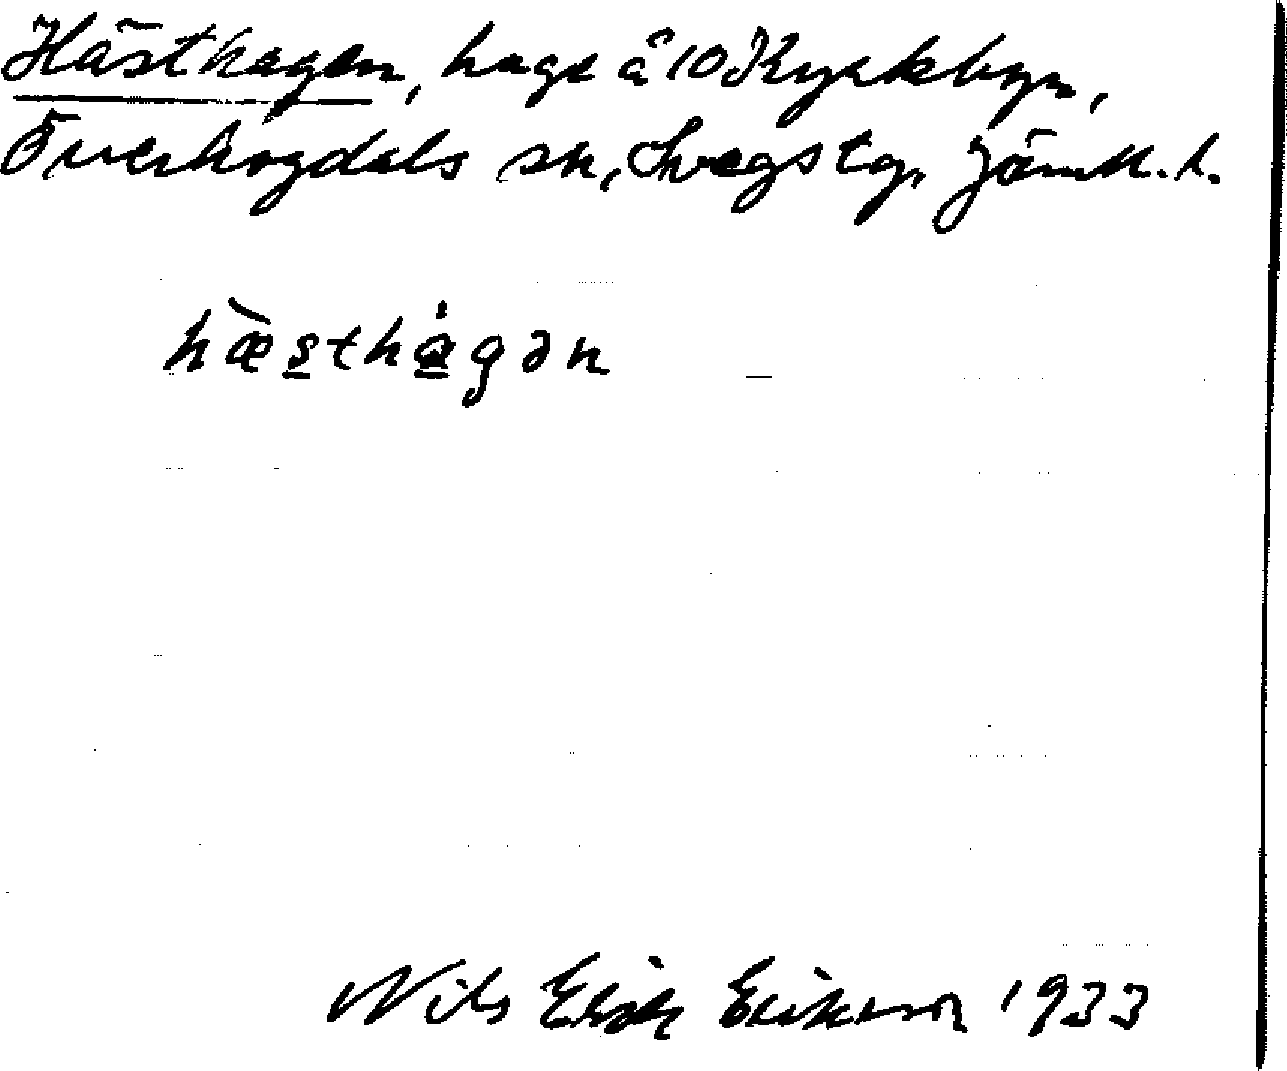 Hästhagen, hage å 10 Kyrkbyn,
Överhogdals sn, Svegs tg, Jämtl. l.
hæ̀s̲thȧ̲gən
Nils Erik Eriksson 1933